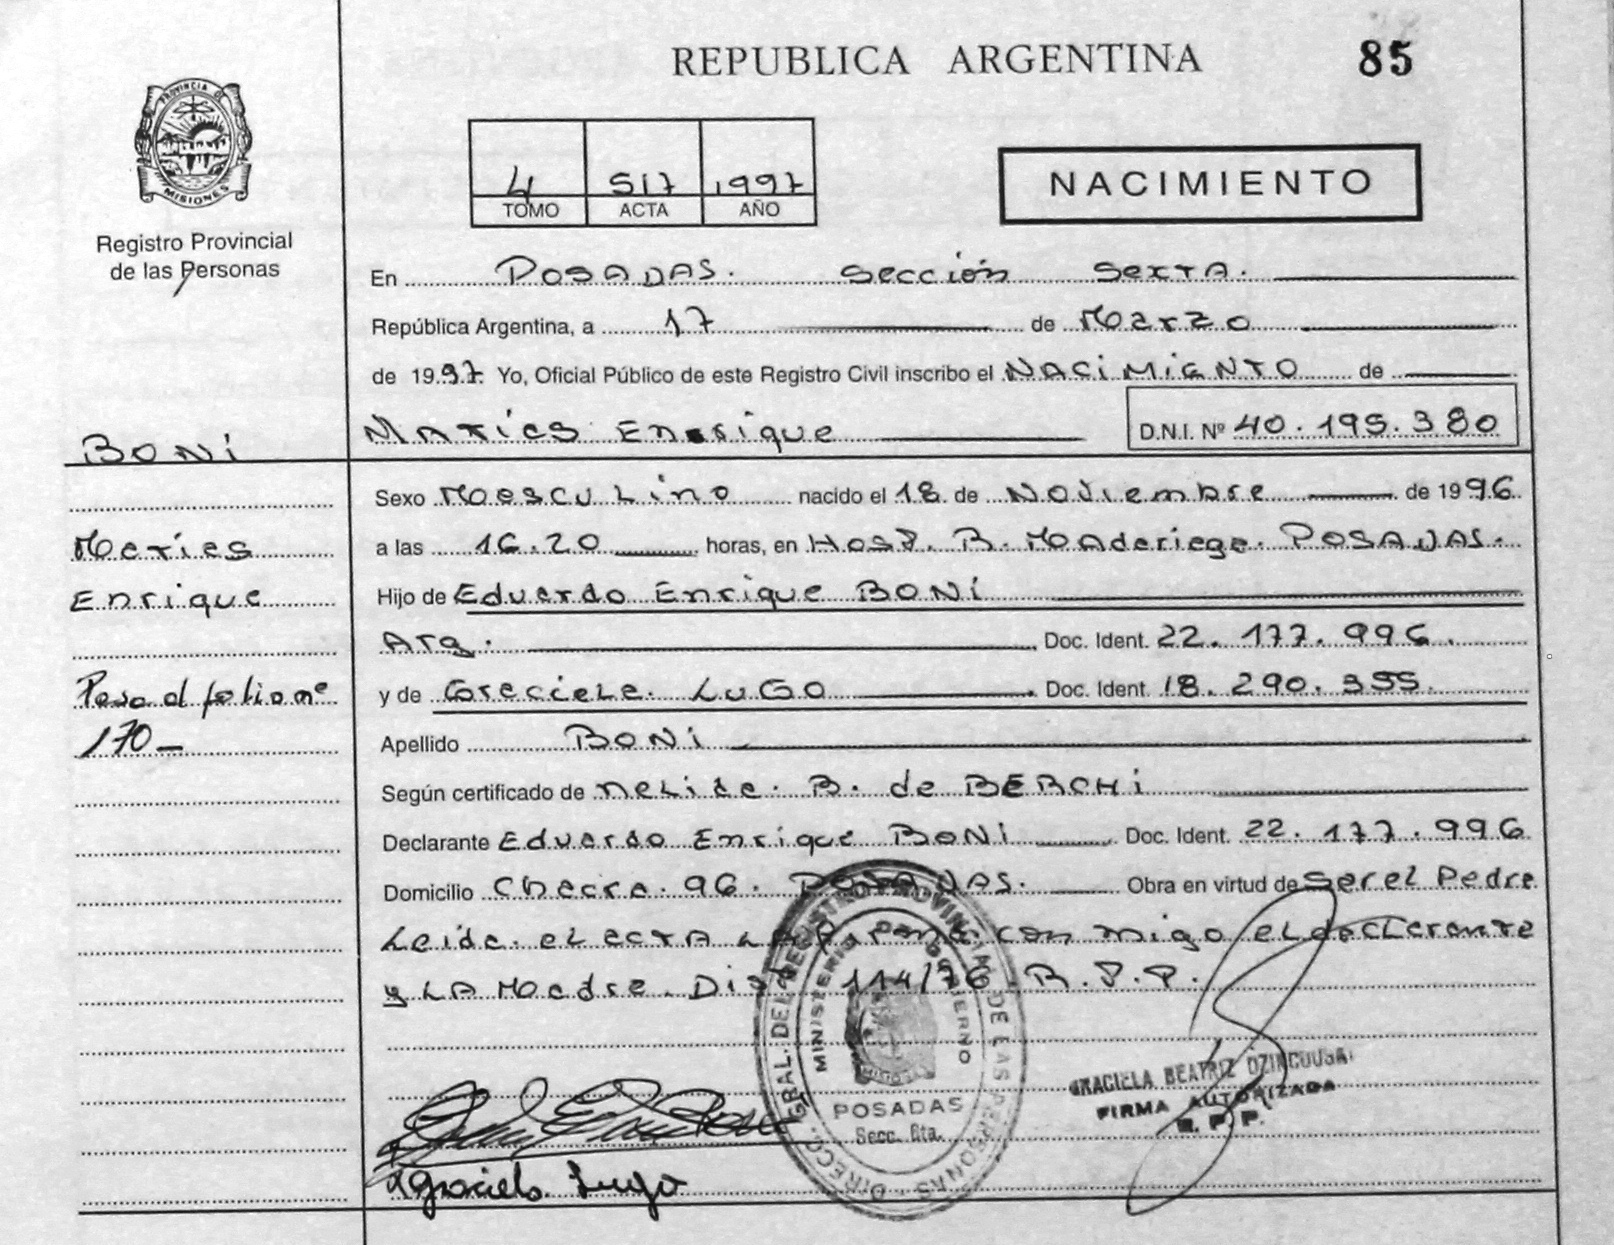 REPUBLICA ARGENTINA
85
PROVINCIA D
MISIONES
Registro Provincial
de las Personas
4 517 1997
TOMO ACTA AÑO
NACIMIENTO
En POSADAS. Sección Sexta.
República Argentina, a 17 de Marzo
de 1997. Yo, Oficial Público de este Registro Civil inscribo el NACIMIENTO de
Matías Enrique D.N.I. Nº 40.195.380
BONI
Matías
Enrique
Pasa al folio nº
170-
Sexo Masculino nacido el 18 de Noviembre de 1996
a las 16.20 horas, en Hosp. R. Madariaga. POSADAS.
Hijo de Eduardo Enrique BONI
Arg. Doc. Ident. 22.177.996.
y de Graciela. LUGO Doc. Ident. 18.290.355.
Apellido BONI
Según certificado de Nelida. B. de BERCHI
Declarante Eduardo Enrique BONI Doc. Ident. 22.177.996
Domicilio Chacra. 96. POSADAS. Obra en virtud de ser el Padre
Leida. el acta la firman con migo el declarante
y LA Madre. Disp. 114/76. R.P.P.
DIRECC. GRAL. DEL REGISTRO PROVINCIAL DE LAS PERSONAS
MINISTERIO DE GOBIERNO
MISIONES
POSADAS
Secc. 6ta.
GRACIELA BEATRIZ
FIRMA AUTORIZADA
R. P. P.
Graciela Lugo